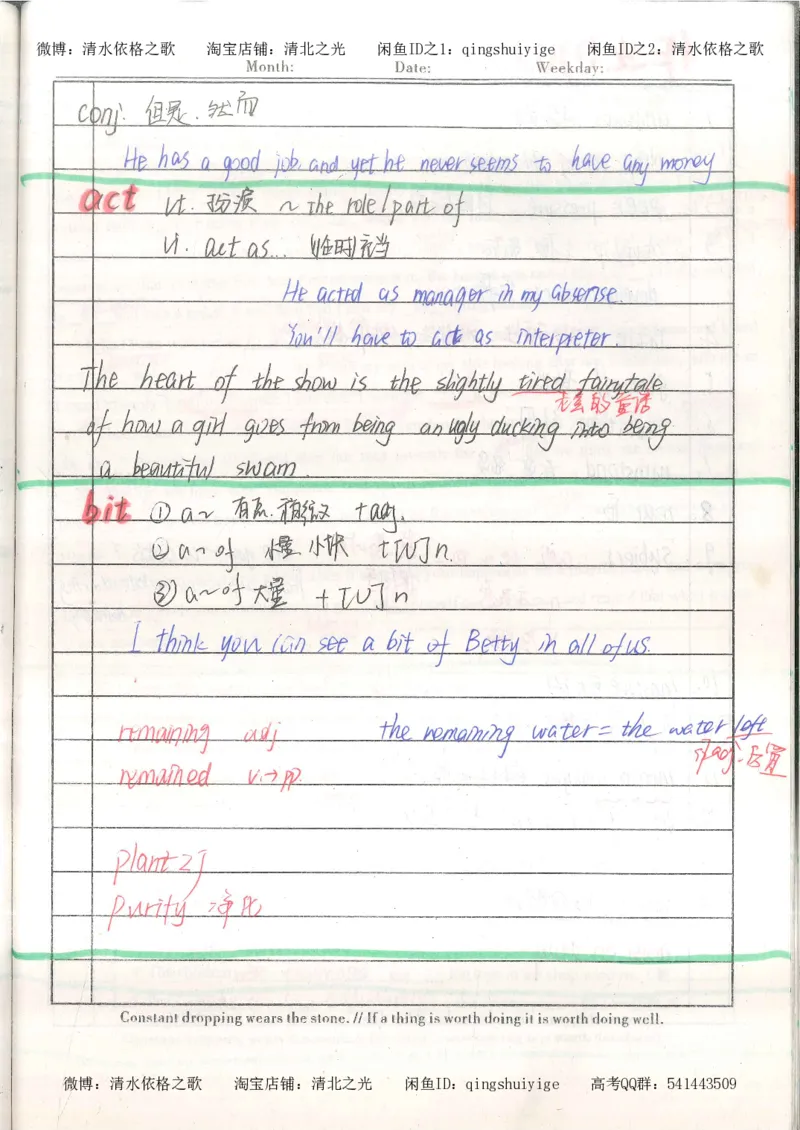 微博：清水依格之歌 淘宝店铺：清北之光 闲鱼ID之1：qingshuiyige 闲鱼ID之2：清水依格之歌
Month: Date: Weekday:
conj. 但是.然而
He has a good job, and yet he never seems to have any money
act vt. 扮演 ~ the role/part of
vi. act as... 临时充当
He acted as manager in my absense.
You'll have to act as interpreter
The heart of the show is the slightly tired fairytale
老套的童话
of how a girl goes from being an ugly ducking into being
a beautiful swam.
bit ① a~ 有点.稍微 +adj.
② a~of 少量 小块 +[U]n.
③ a~of 大量 +[U]n
I think you can see a bit of Betty in all of us.
remaining adj the remaining water = the water left
作adj.后置
remained vi→pp.
plant
purity 净化
Constant dropping wears the stone. // If a thing is worth doing it is worth doing well.
微博：清水依格之歌 淘宝店铺：清北之光 闲鱼ID：qingshuiyige 高考QQ群：541443509